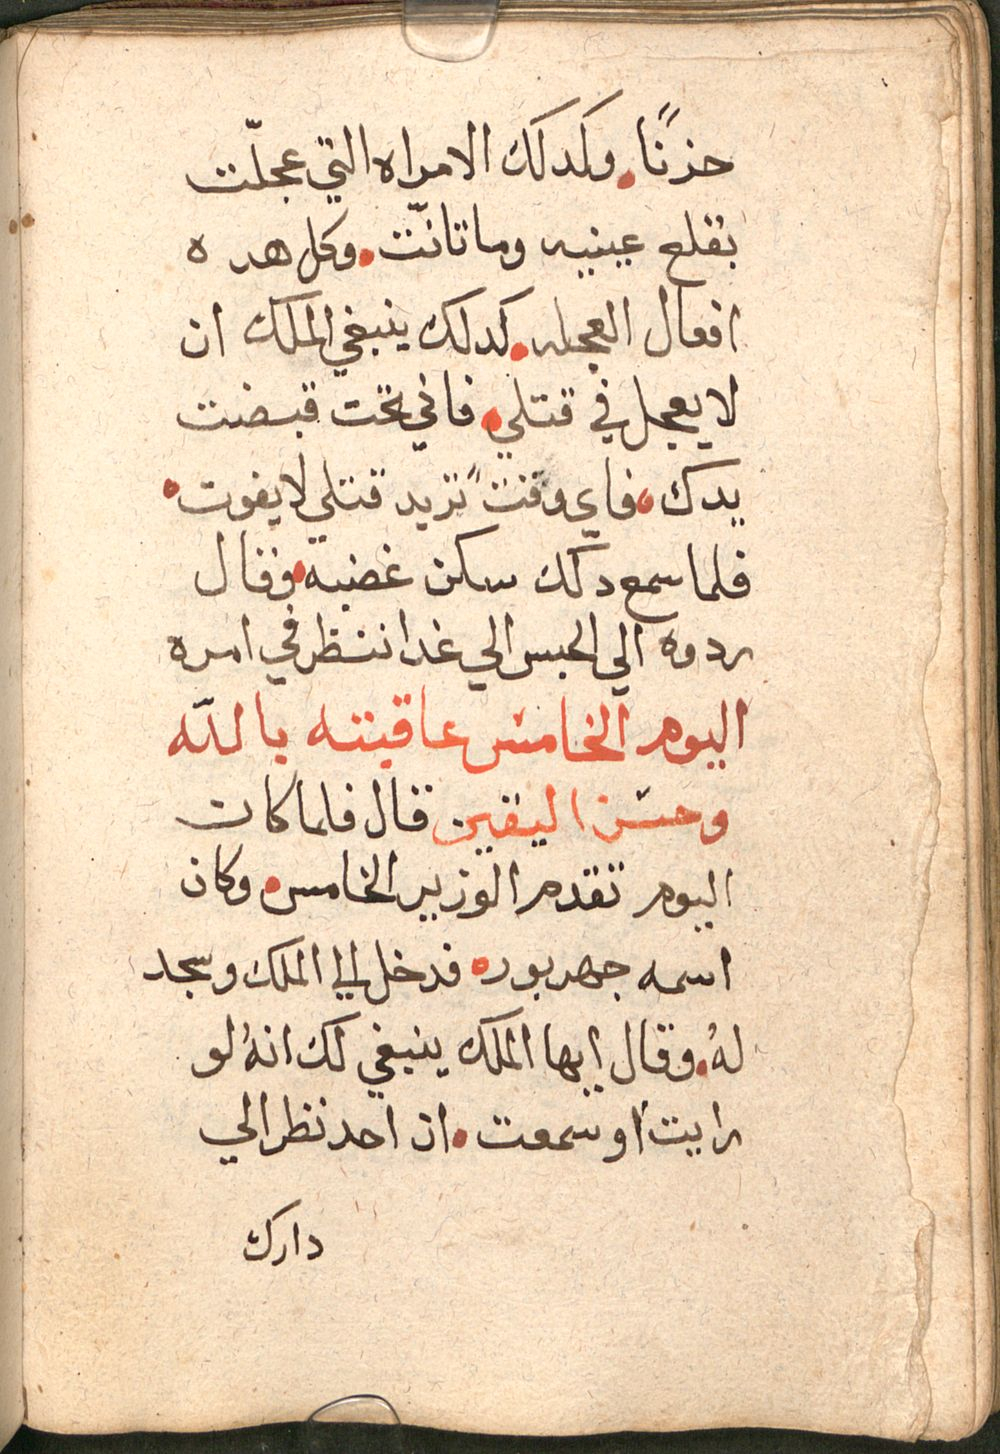 حزنًا. وكدلك الامراه التي عجلّت
بقلع عينيه وما تانّت. وكل هده
افعال العجله. كدلك ينبغي الملك ان
لا يعجل في قتلي. فاني تحت قبضت
يدك. فاي وقت تريد قتلي لا يفوت.
فلما سمع دلك سكن غضبه. وقال
ردوه الي الحبس الي غدا ننظر في امره
اليوم الخامس عاقبته بالله
وحسن اليقين قال فلما كان
اليوم تقدم الوزير الخامس. وكان
اسمه جهربور. فدخل الي الملك وسجد
لهُ. وقال ايها الملك ينبغي لك انهُ لو
رايت او سمعت. ان احد نظر الي
دارك